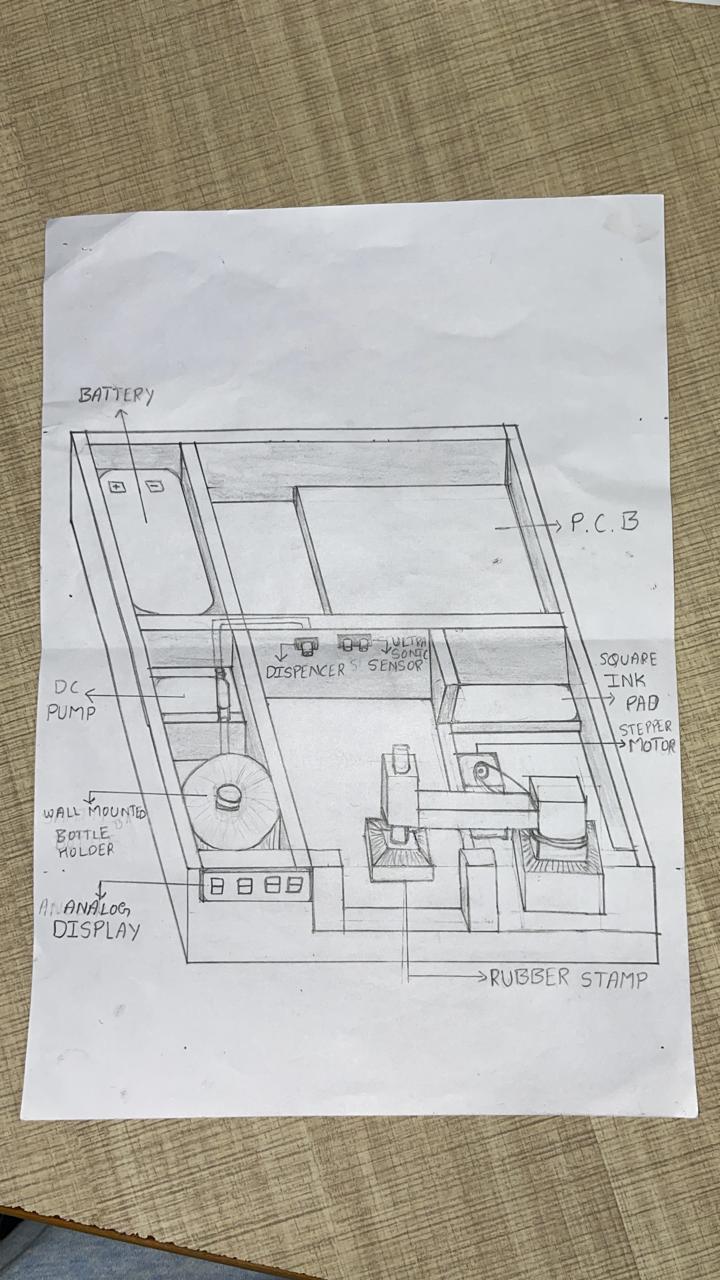 BATTERY
+ -
P.C.B
DISPENCER
ULTRA
SONIC
SENSOR
SQUARE
INK
PAD
DC
PUMP
STEPPER
MOTOR
WALL MOUNTED
BOTTLE
HOLDER
ANALOG
DISPLAY
8 8 8 8
RUBBER STAMP